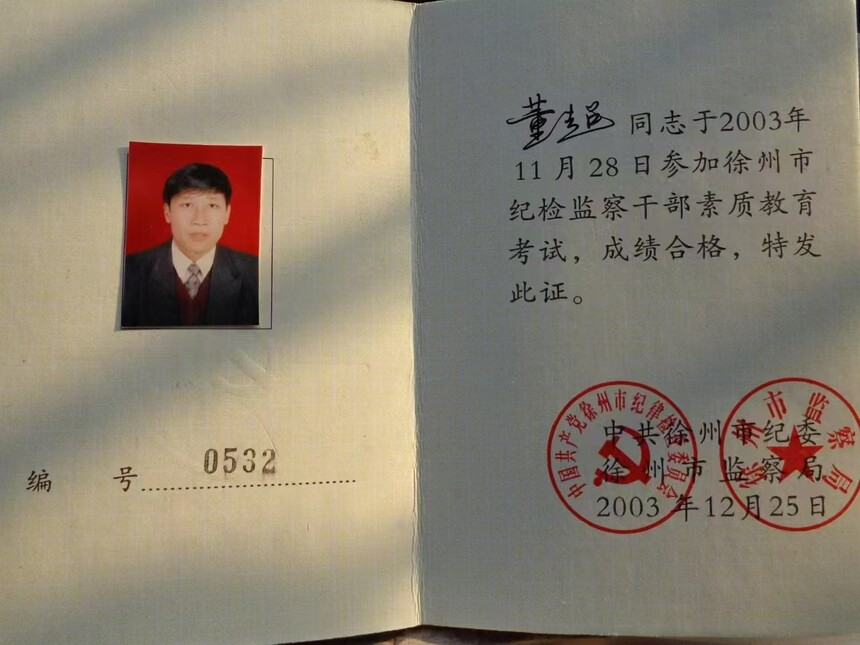 编 号 0532
董 同志于2003年
11月28日参加徐州市
纪检监察干部素质教育
考试，成绩合格，特发
此证。
中国共产党徐州市纪律检查委员会
徐州市监察局
中共徐州市纪委
徐州市监察局
2003年12月25日